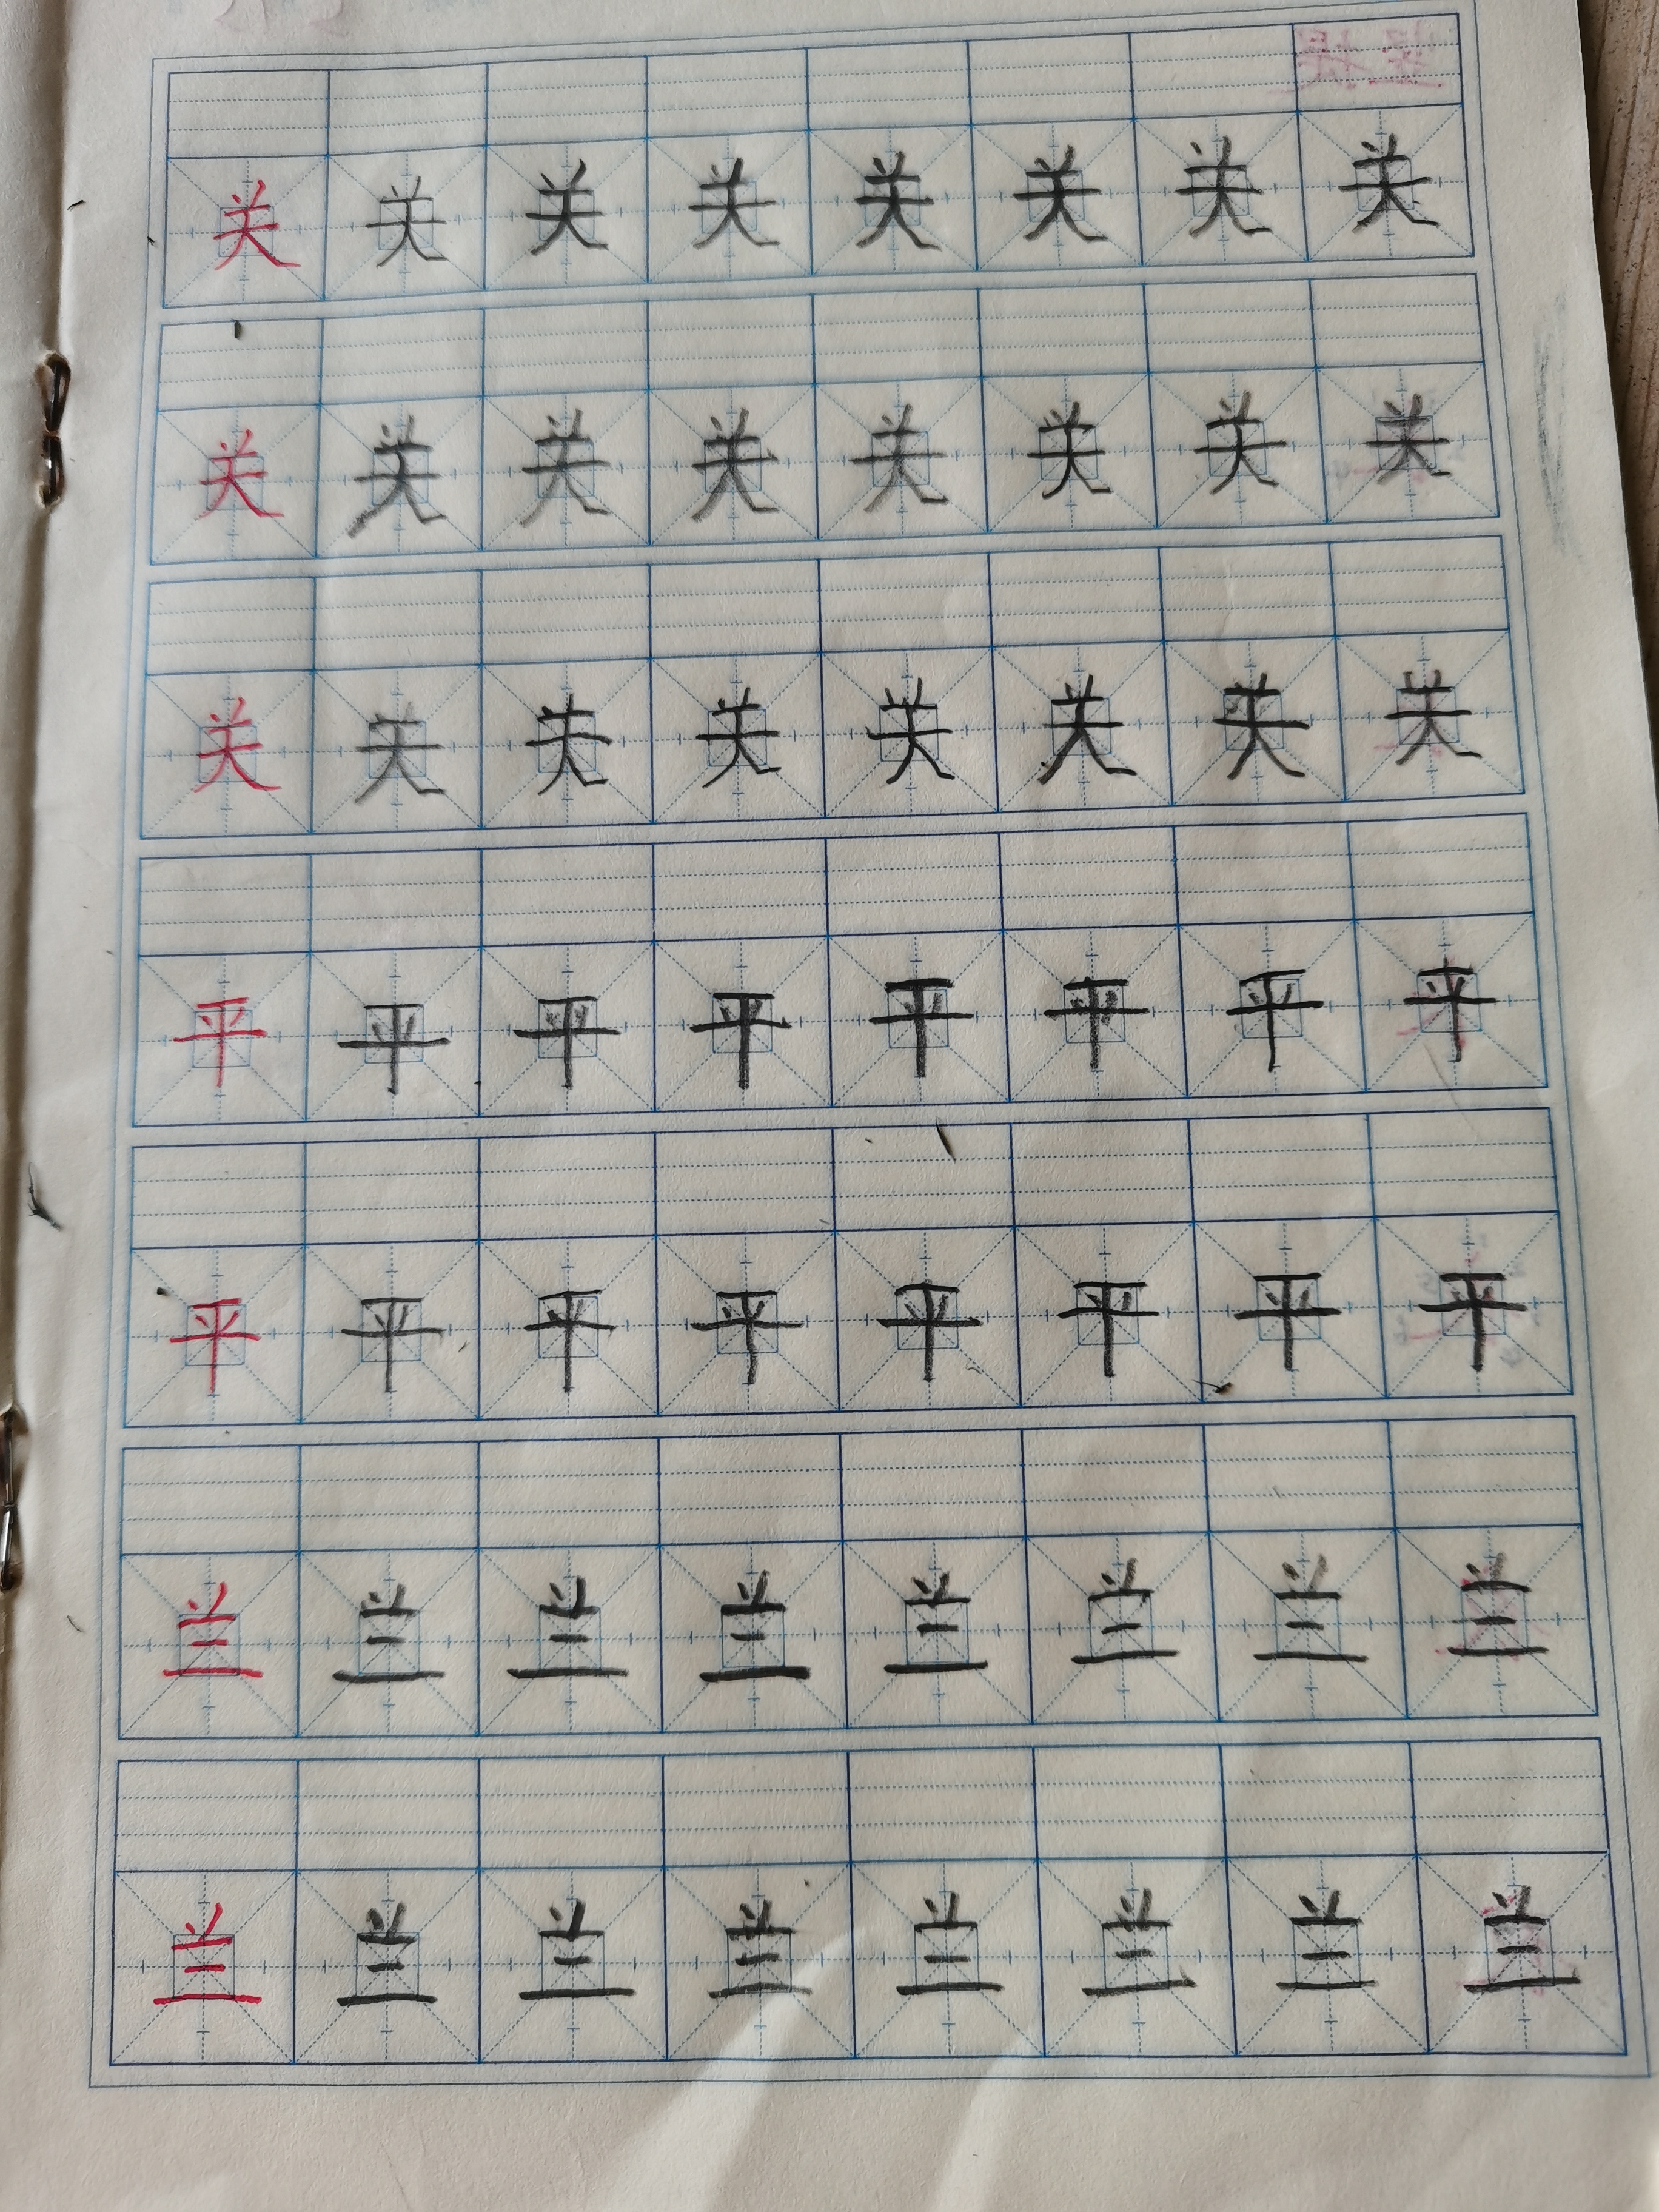 关关关关关关关关
关关关关关关关关
关关关关关关关关
平平平平平平平平
平平平平平平平平
兰兰兰兰兰兰兰兰
兰兰兰兰兰兰兰兰